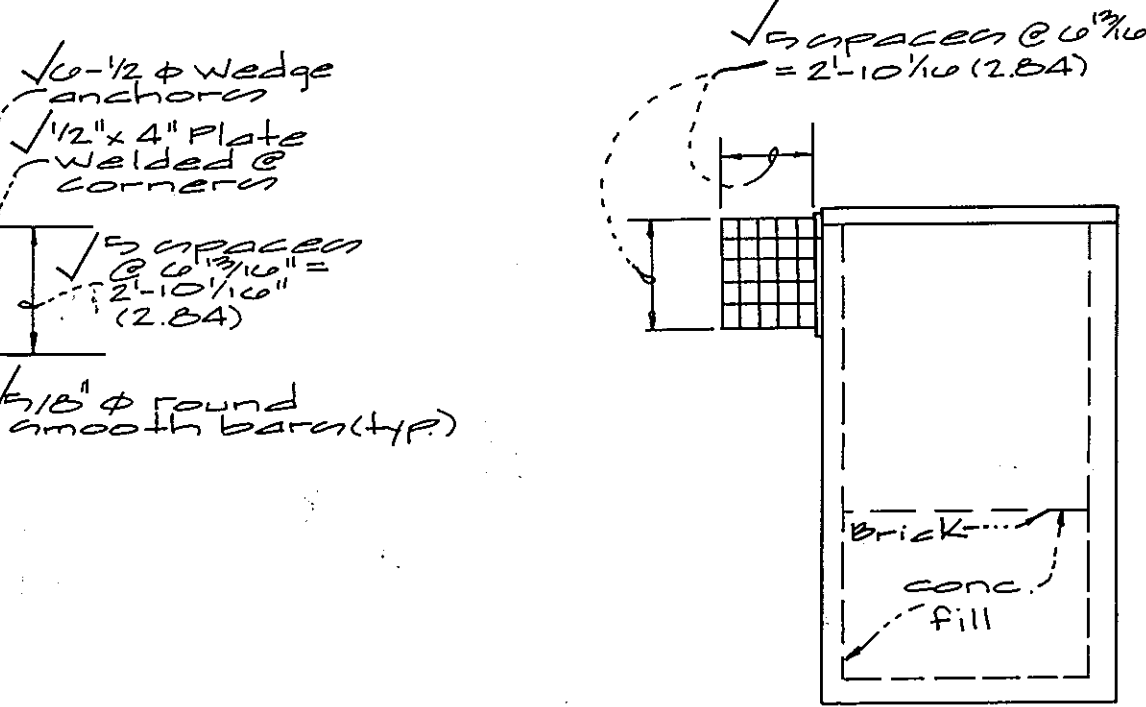 √6-1/2 φ wedge
anchors
√1/2" x 4" Plate
welded @
corners
√5 spaces
@ 6 13/16" =
2'-10 1/16"
(2.84)
√5/8" φ round
smooth bars (typ.)
√5 spaces @ 6 13/16
= 2'-10 1/16 (2.84)
Brick
conc.
fill